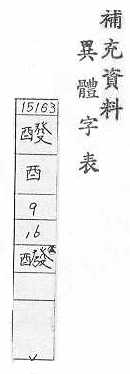 補充資料
異體字表
15163
醱
酉
9
16
醱